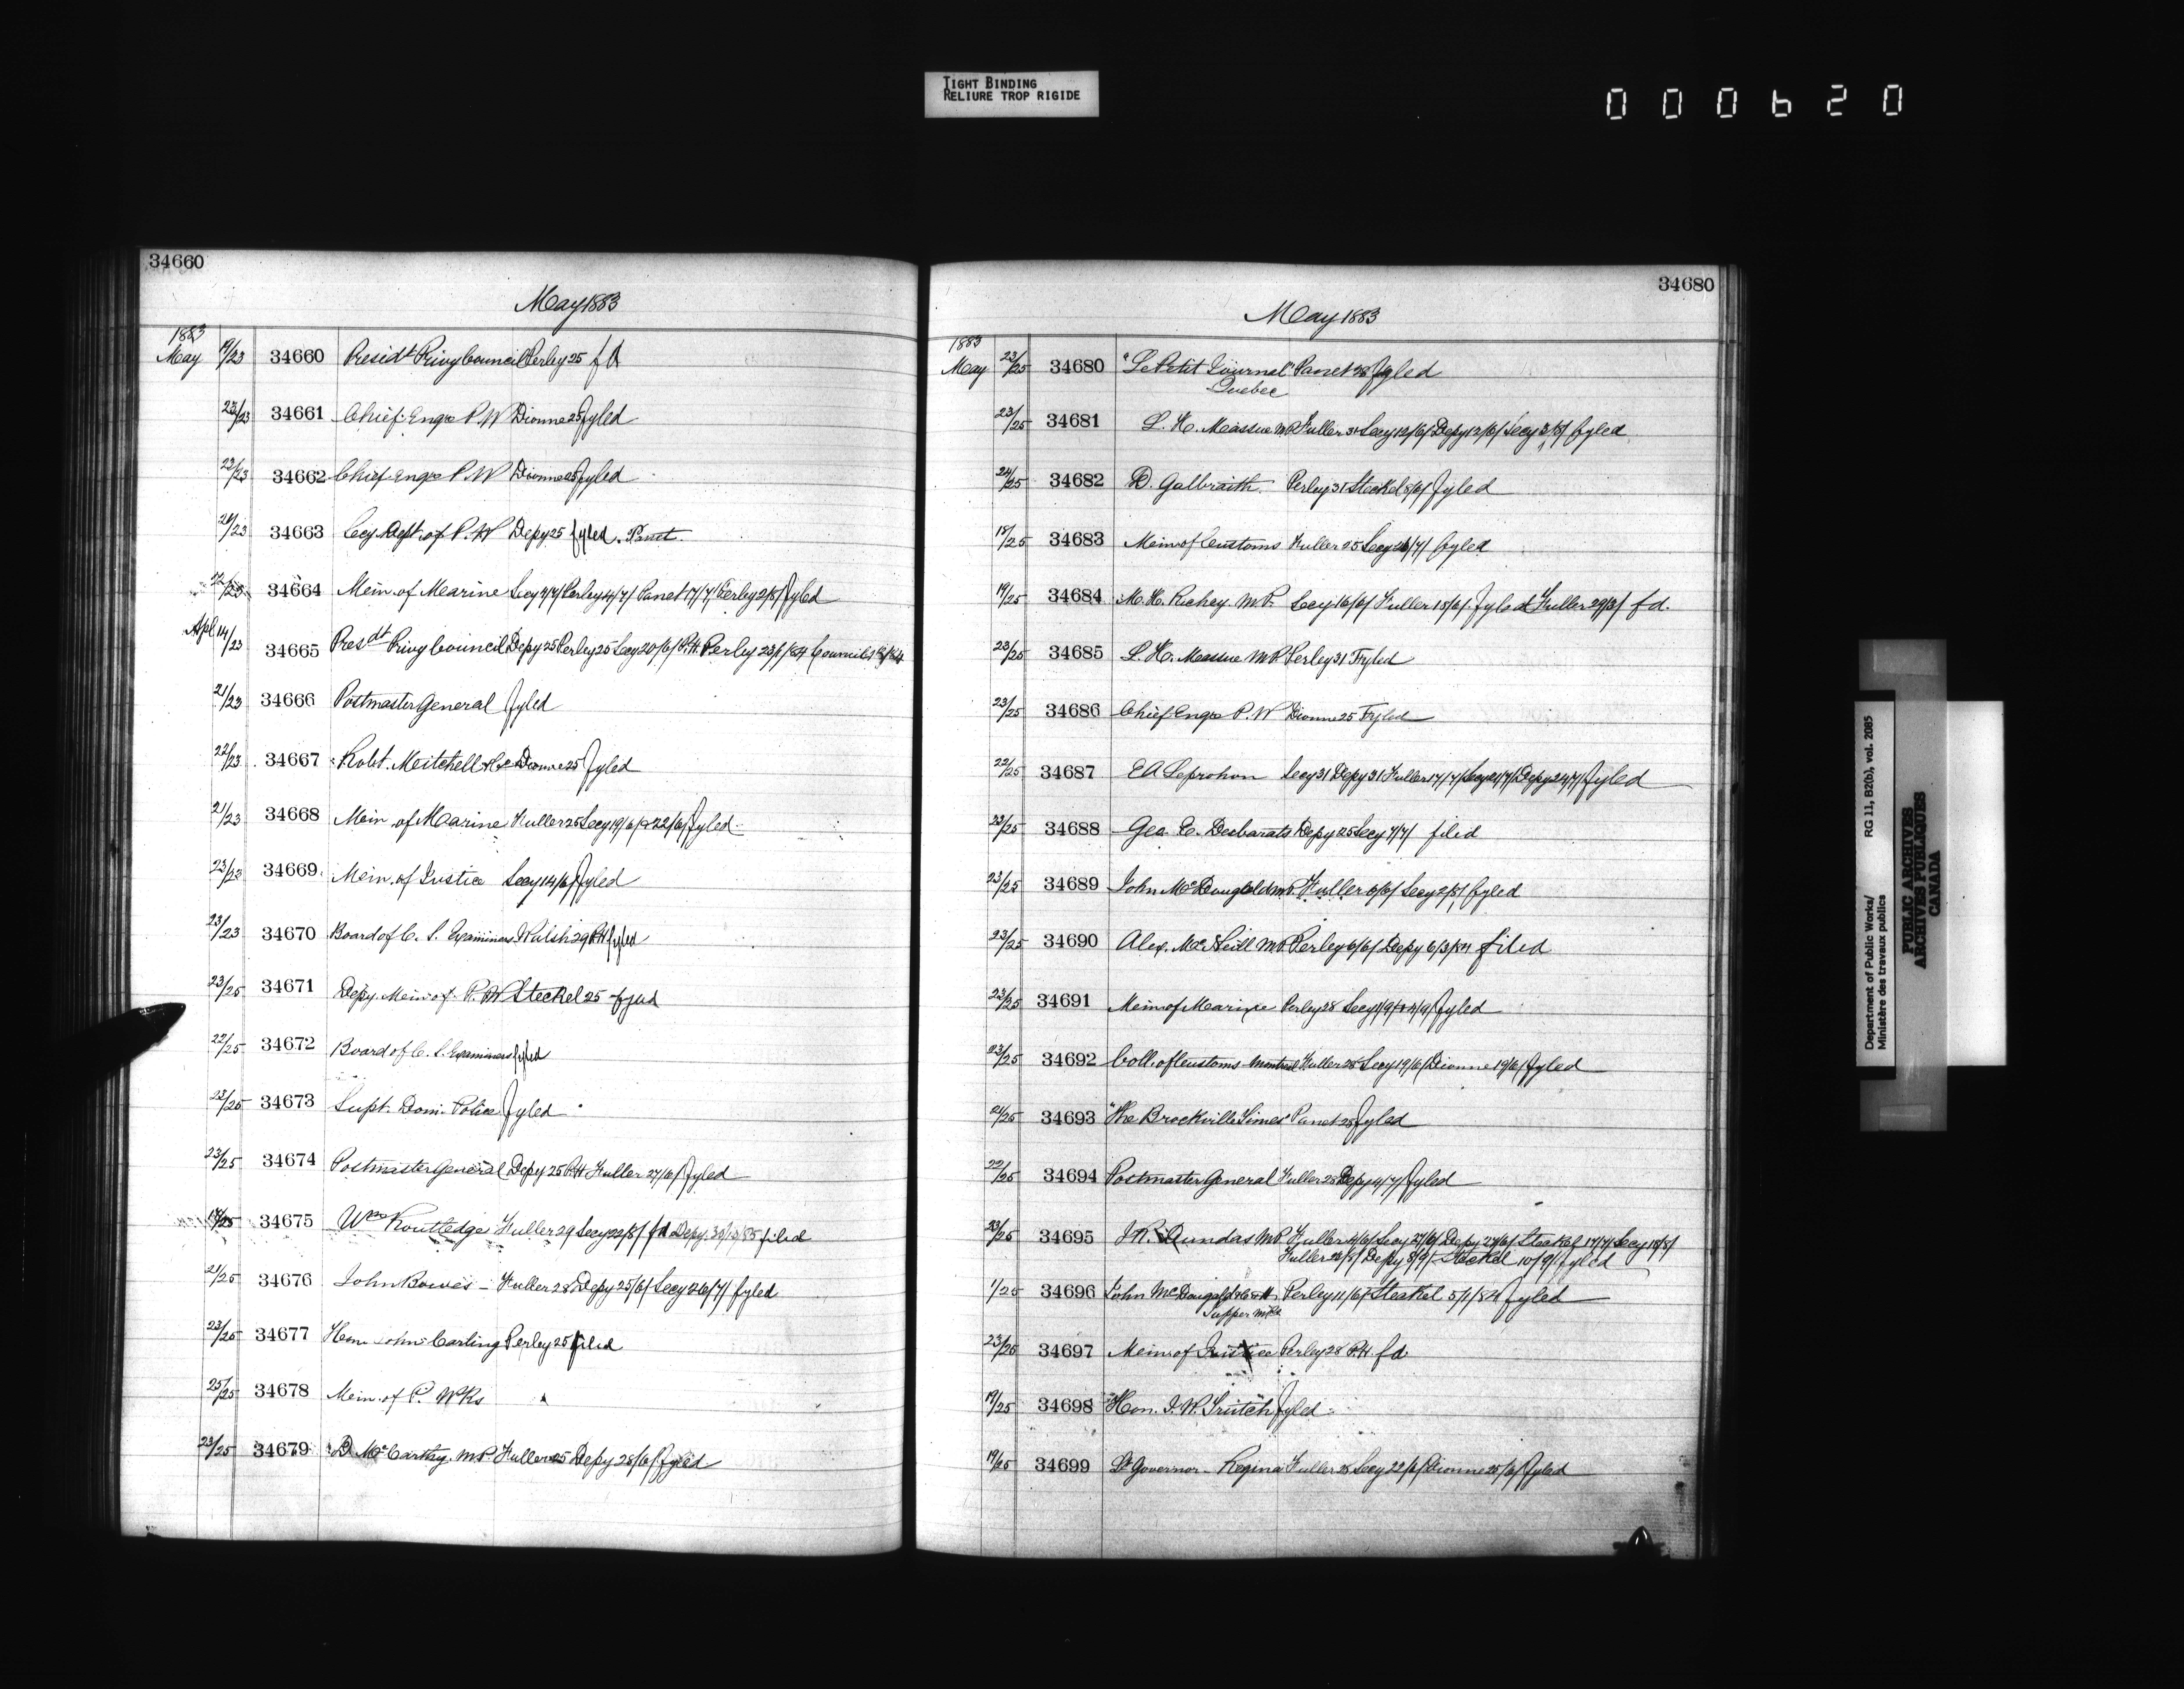 TIGHT BINDING
RELIURE TROP RIGIDE
000620
34660
May 1883
1883
May 19/23 34660 Presidt Privy Council Perley 25 fd
23/23 34661 Chief Engr P.W Dionne 25 fyled
22/23 34662 Chief Engr P.W Dionne 25 fyled
21/23 34663 Secy Dept of P.W Depy 25 fyled. Panet
22/23 34664 Min. of Marine Secy 4/7/ Perley 4/7/ Panet 17/7/ Perley 2/8/ fyled
Apl 14/23 34665 Presdt Privy Council Depy 25 Perley 25 Secy 20/6/ P.H. Perley 23/1/84 Council
21/23 34666 Postmaster General fyled
22/23 34667 Robt. Mitchell & Co Dionne 25 fyled
21/23 34668 Min of Marine Fuller 25 Secy 19/6/ & 22/6/ fyled
23/23 34669 Min. of Justice Secy 14/6/ fyled
23/23 34670 Board of C. S. Examiners Walsh 29 P.H fyled
23/25 34671 Depy. Min of P. W Steckel 25 fyled
22/25 34672 Board of C. S. Examiners fyled
22/25 34673 Supt. Dom. Police fyled
23/25 34674 Postmaster General Depy 25 P.H. Fuller 27/6/ fyled
17/25 34675 Wm Routledge Fuller 29 Secy 22/8/ fd Depy. 30/10/85 filed
21/25 34676 John Bowes - Fuller 28 Depy 25/6/ Secy 26/7/ fyled
23/25 34677 Hon John Carling Perley 25 filed
25/25 34678 Min. of P. Wks
23/25 34679 D. McCarthy. M.P. Fuller 25 Depy 28/6/ fyled
34680
May 1883
1883
May 23/25 34680 "Le Petit Journal" Panet 28 fyled
Quebec
23/25 34681 L. H. Massue M.P. Fuller 31 Secy 12/6/ Depy 12/6/ Secy 3/8/ fyled
24/25 34682 D. Galbraith Perley 31 Steckel 5/6/ fyled
18/25 34683 Min of Customs Fuller 25 Secy 26/7/ fyled
19/25 34684 M. H. Richey M.P. Secy 16/6/ Fuller 18/6/ fyled Fuller 29/3/ fd.
23/25 34685 L. H. Massue M.P. Perley 31 Fyled
23/25 34686 Chief Engr P. W Dionne 25 Fyled
22/25 34687 E A Leprohon Secy 31 Depy 31 Fuller 17/7/ Secy 21/7/ Depy 24/7/ fyled
23/25 34688 Geo. E. Desbarats Depy 25 Secy 7/7/ filed
23/25 34689 John McDougald M.P. Fuller 6/6/ Secy 2/8/ fyled
23/25 34690 Alex. McNeill M.P. Perley 6/6/ Depy 6/3/84 filed
23/25 34691 Min of Marine Perley 28 Secy 1/9/ & 4/9/ fyled
23/25 34692 Coll. of Customs Montreal Fuller 28 Secy 19/6/ Dionne 19/6/ fyled
21/25 34693 "The Brockville Times" Panet 28 fyled
22/25 34694 Postmaster General Fuller 28 Depy 4/7/ fyled
23/25 34695 J. R. Dundas M.P. Fuller 4/6/ Secy 27/6/ Depy 27/6/ Steckel 17/7/ Secy 18/8/
Fuller 24/8/ Depy 8/9/ Steckel 10/9/ fyled
1/25 34696 John McDougald & Co Perley 11/6/ Steckel 5/1/84 fyled
23/25 34697 Min of Justice Perley 28 P.H. fd
19/25 34698 "Hon. J. W. Trutch fyled
19/25 34699 Lt Governor - Regina Fuller 28 Secy 22/6/ Dionne 25/6/ fyled
Department of Public Works/ RG 11, B2(b), vol. 2085
Ministère des travaux publics
PUBLIC ARCHIVES
ARCHIVES PUBLIQUES
CANADA